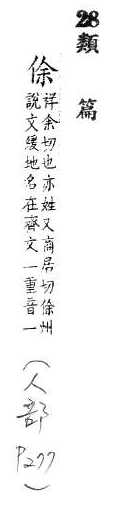 28類 篇
徐
祥余切也亦姓又商居切徐州
說文緩地名在齊文一重音一
(人部 P277)